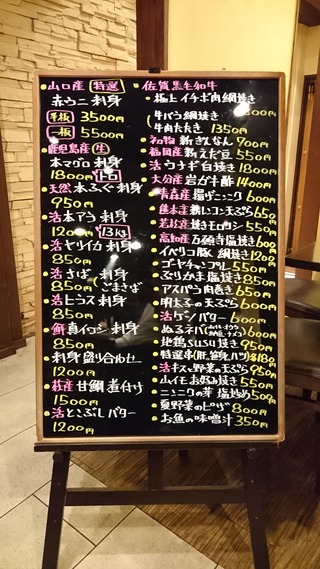 山口産 特選
赤ウニ 刺身
半板 3500円
一板 5500円
鹿児島産 生
本マグロ 刺身
1800円 トロ
天然 本ふぐ 刺身
950円
活 本アラ 刺身
1200円 13kg
活 ヤリイカ 刺身
850円
活 さば 刺身
850円 ごまさば
活 ヒラス 刺身
850円
鮮 真イワシ 刺身
850円
刺身 盛り合わせ
1200円
甘鯛 煮付け
1500円
活 とこぶし バター
1200円
佐賀 黒毛和牛
極上 イチボ肉 網焼き
牛バラ 網焼き
牛肉たたき 1350円
初物 新ぎんなん 700円
福岡産 新えだ豆 550円
活 ウナギ 白焼き 1800円
大分産 岩ガキ酢 1400円
青森産 揚げニンニク 600円
熊本産 新レンコン天ぷら 650円
若松産 焼きモロコシ 550円
高知産 万願寺塩焼き 600円
イベリコ豚 網焼き 1200円
ゴーヤチャンプルー 550円
ぶりかま塩焼き 850円
アスパラ肉巻き 650円
明太子の天ぷら 600円
活 ゲソバター 600円
ぬるネバ 600円
地鶏スタミナ焼き 950円
特選串
活 キスと野菜の天ぷら 950円
山イモお好み焼き 550円
ニンニクの芽 塩炒め 500円
夏野菜のピザ 800円
お魚の味噌汁 350円